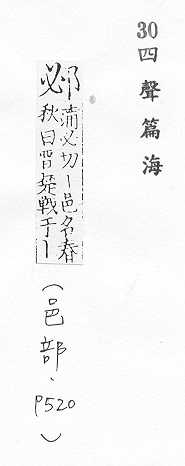 30四聲篇海
邲蒲必切丨邑名春
秋曰晉楚戰于丨
(邑部、P520)